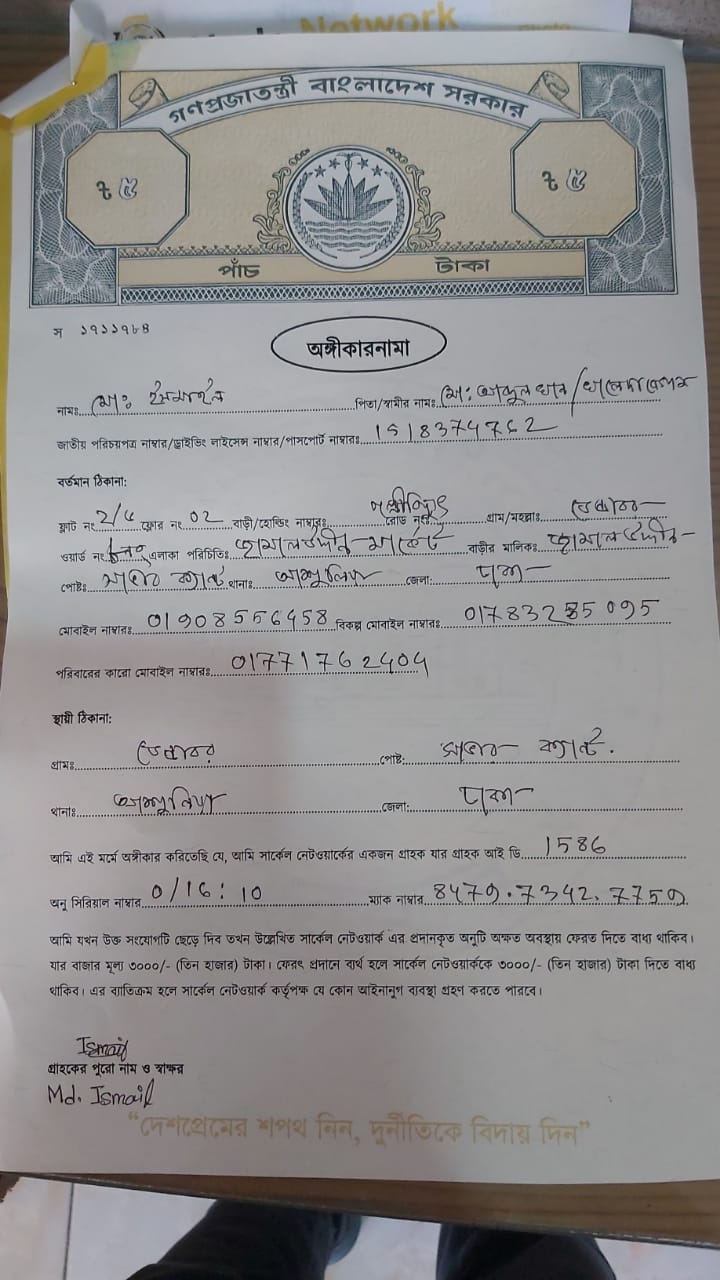 Network
গণপ্রজাতন্ত্রী বাংলাদেশ সরকার
৳ ৫ ৳ ৫
পাঁচ টাকা
স ১৭১১৭৮৪
অঙ্গীকারনামা
নামঃ মোঃ ইসমাইল পিতা/স্বামীর নামঃ মো: আব্দুল খান / খালেদা বেগম
জাতীয় পরিচয়পত্র নাম্বার/ড্রাইভিং লাইসেন্স নাম্বার/পাসপোর্ট নাম্বারঃ
বর্তমান ঠিকানা:
ফ্লাট নং 2/5 ফ্লোর নং 02 বাড়ী/হোল্ডিং নাম্বারঃ পল্লীবিদ্যুৎ রোড নংঃ গ্রাম/মহল্লাঃ
ওয়ার্ড নং এলাকা পরিচিতিঃ জামালউদ্দীন মার্কেট বাড়ীর মালিকঃ জামালউদ্দীন
পোষ্টঃ সাভার ক্যান্ট থানাঃ আশুলিয়া জেলা: ঢাকা
মোবাইল নাম্বারঃ 01908556458 বিকল্প মোবাইল নাম্বারঃ
পরিবারের কারো মোবাইল নাম্বারঃ 01771762404
স্থায়ী ঠিকানা:
গ্রামঃ পোষ্ট: সাভার ক্যান্ট.
থানাঃ আশুলিয়া জেলা: ঢাকা
আমি এই মর্মে অঙ্গীকার করিতেছি যে, আমি সার্কেল নেটওয়ার্কের একজন গ্রাহক যার গ্রাহক আই ডি 1586
অনু সিরিয়াল নাম্বার 0/16:10 ম্যাক নাম্বার 8479.7342.7759
আমি যখন উক্ত সংযোগটি ছেড়ে দিব তখন উল্লেখিত সার্কেল নেটওয়ার্ক এর প্রদানকৃত অনুটি অক্ষত অবস্থায় ফেরত দিতে বাধ্য থাকিব।
যার বাজার মূল্য ৩০০০/- (তিন হাজার) টাকা। ফেরৎ প্রদানে ব্যর্থ হলে সার্কেল নেটওয়ার্ককে ৩০০০/- (তিন হাজার) টাকা দিতে বাধ্য
থাকিব। এর ব্যতিক্রম হলে সার্কেল নেটওয়ার্ক কর্তৃপক্ষ যে কোন আইনানুগ ব্যবস্থা গ্রহণ করতে পারবে।
Ismail
গ্রাহকের পুরো নাম ও স্বাক্ষর
Md. Ismail
“দেশপ্রেমের শপথ নিন, দুর্নীতিকে বিদায় দিন”